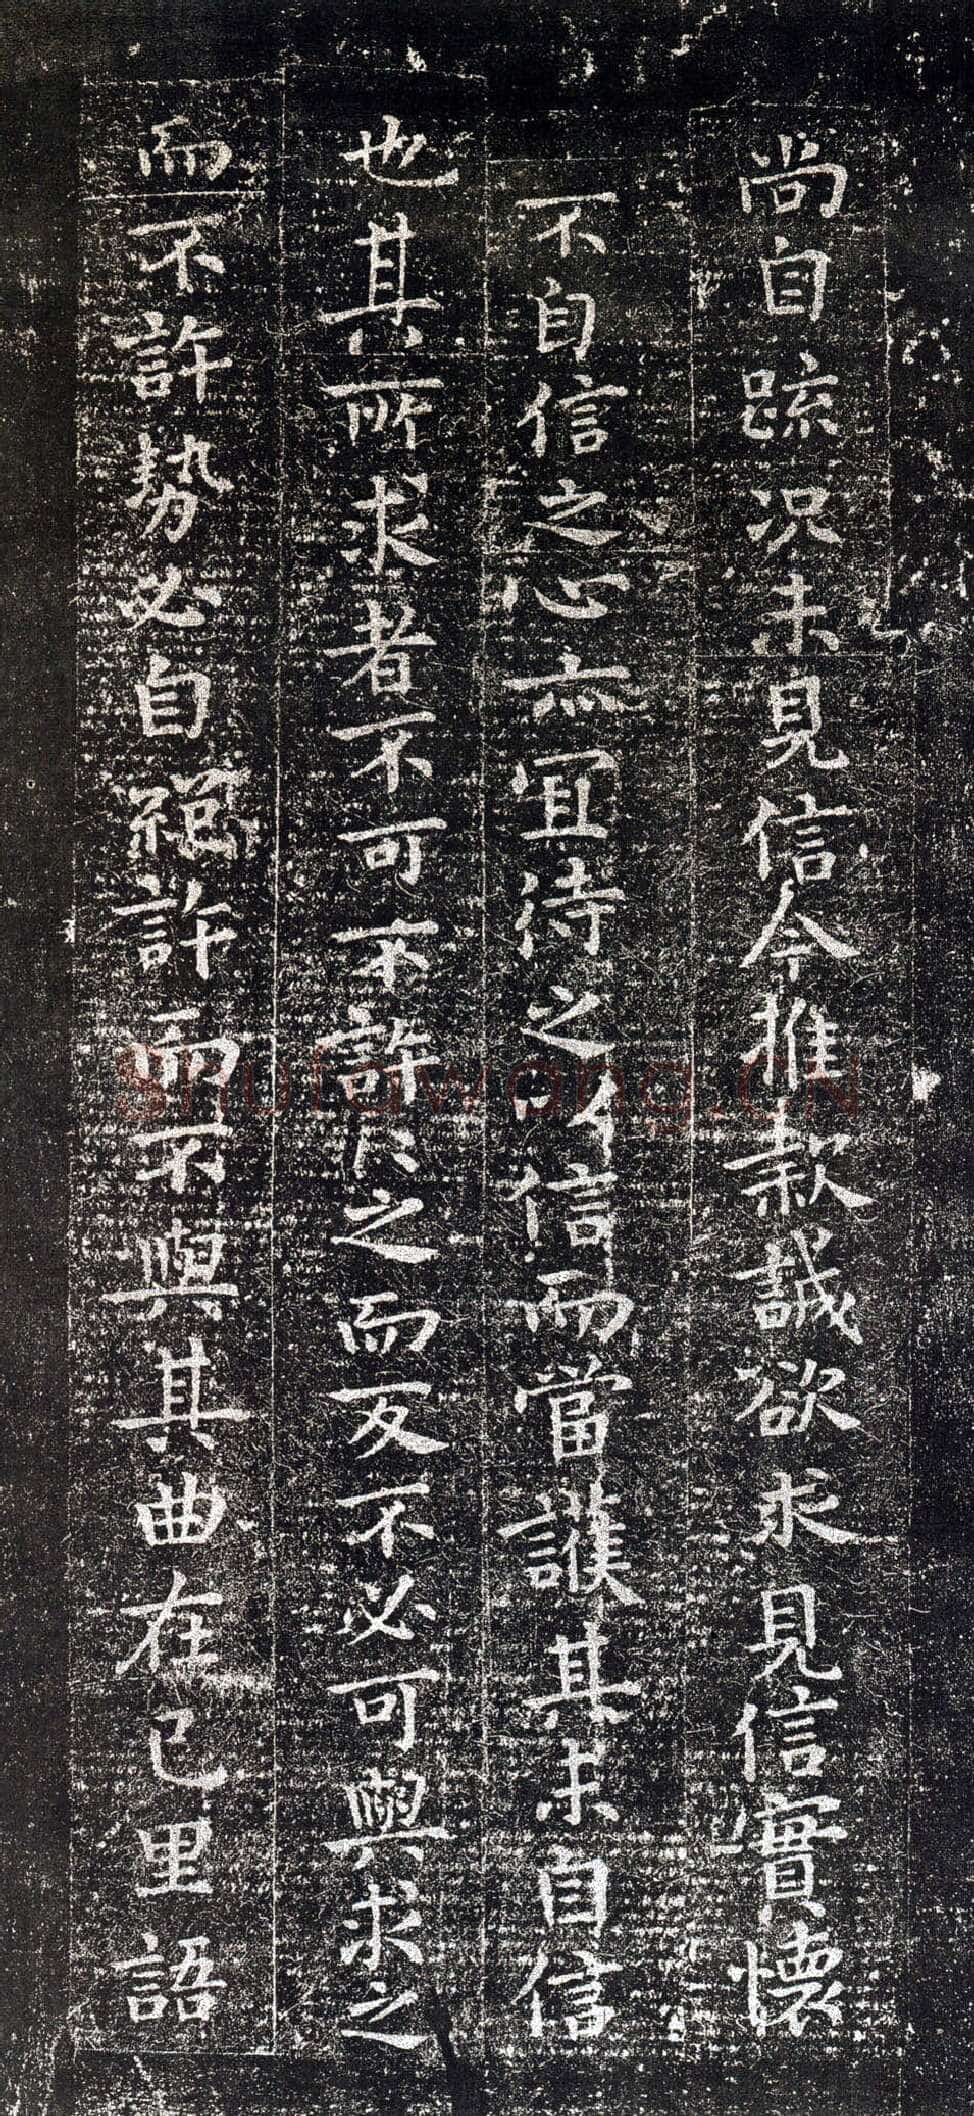 尚自疏況未見信今推款誠欲求見信實懷
不自信之心亦宜待之以信而當護其未自信
也其所求者不可不許許之而反不必可與求之
而不許勢必自絕許而不與其曲在己里語
shufawang.cn